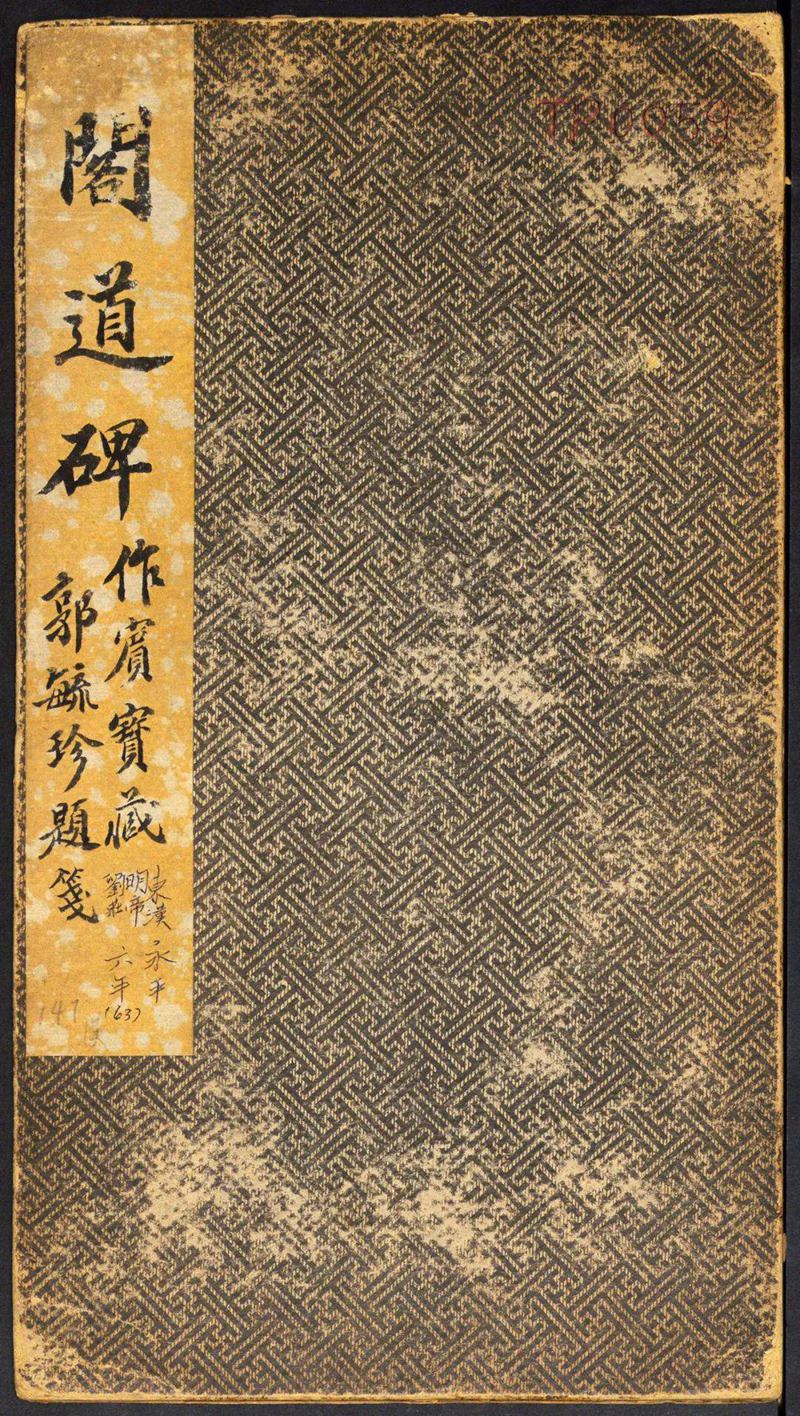 TP0059
閣道碑
作賓寶藏
郭毓珍題箋
東漢 永平
明帝
劉莊 六年(63)
147